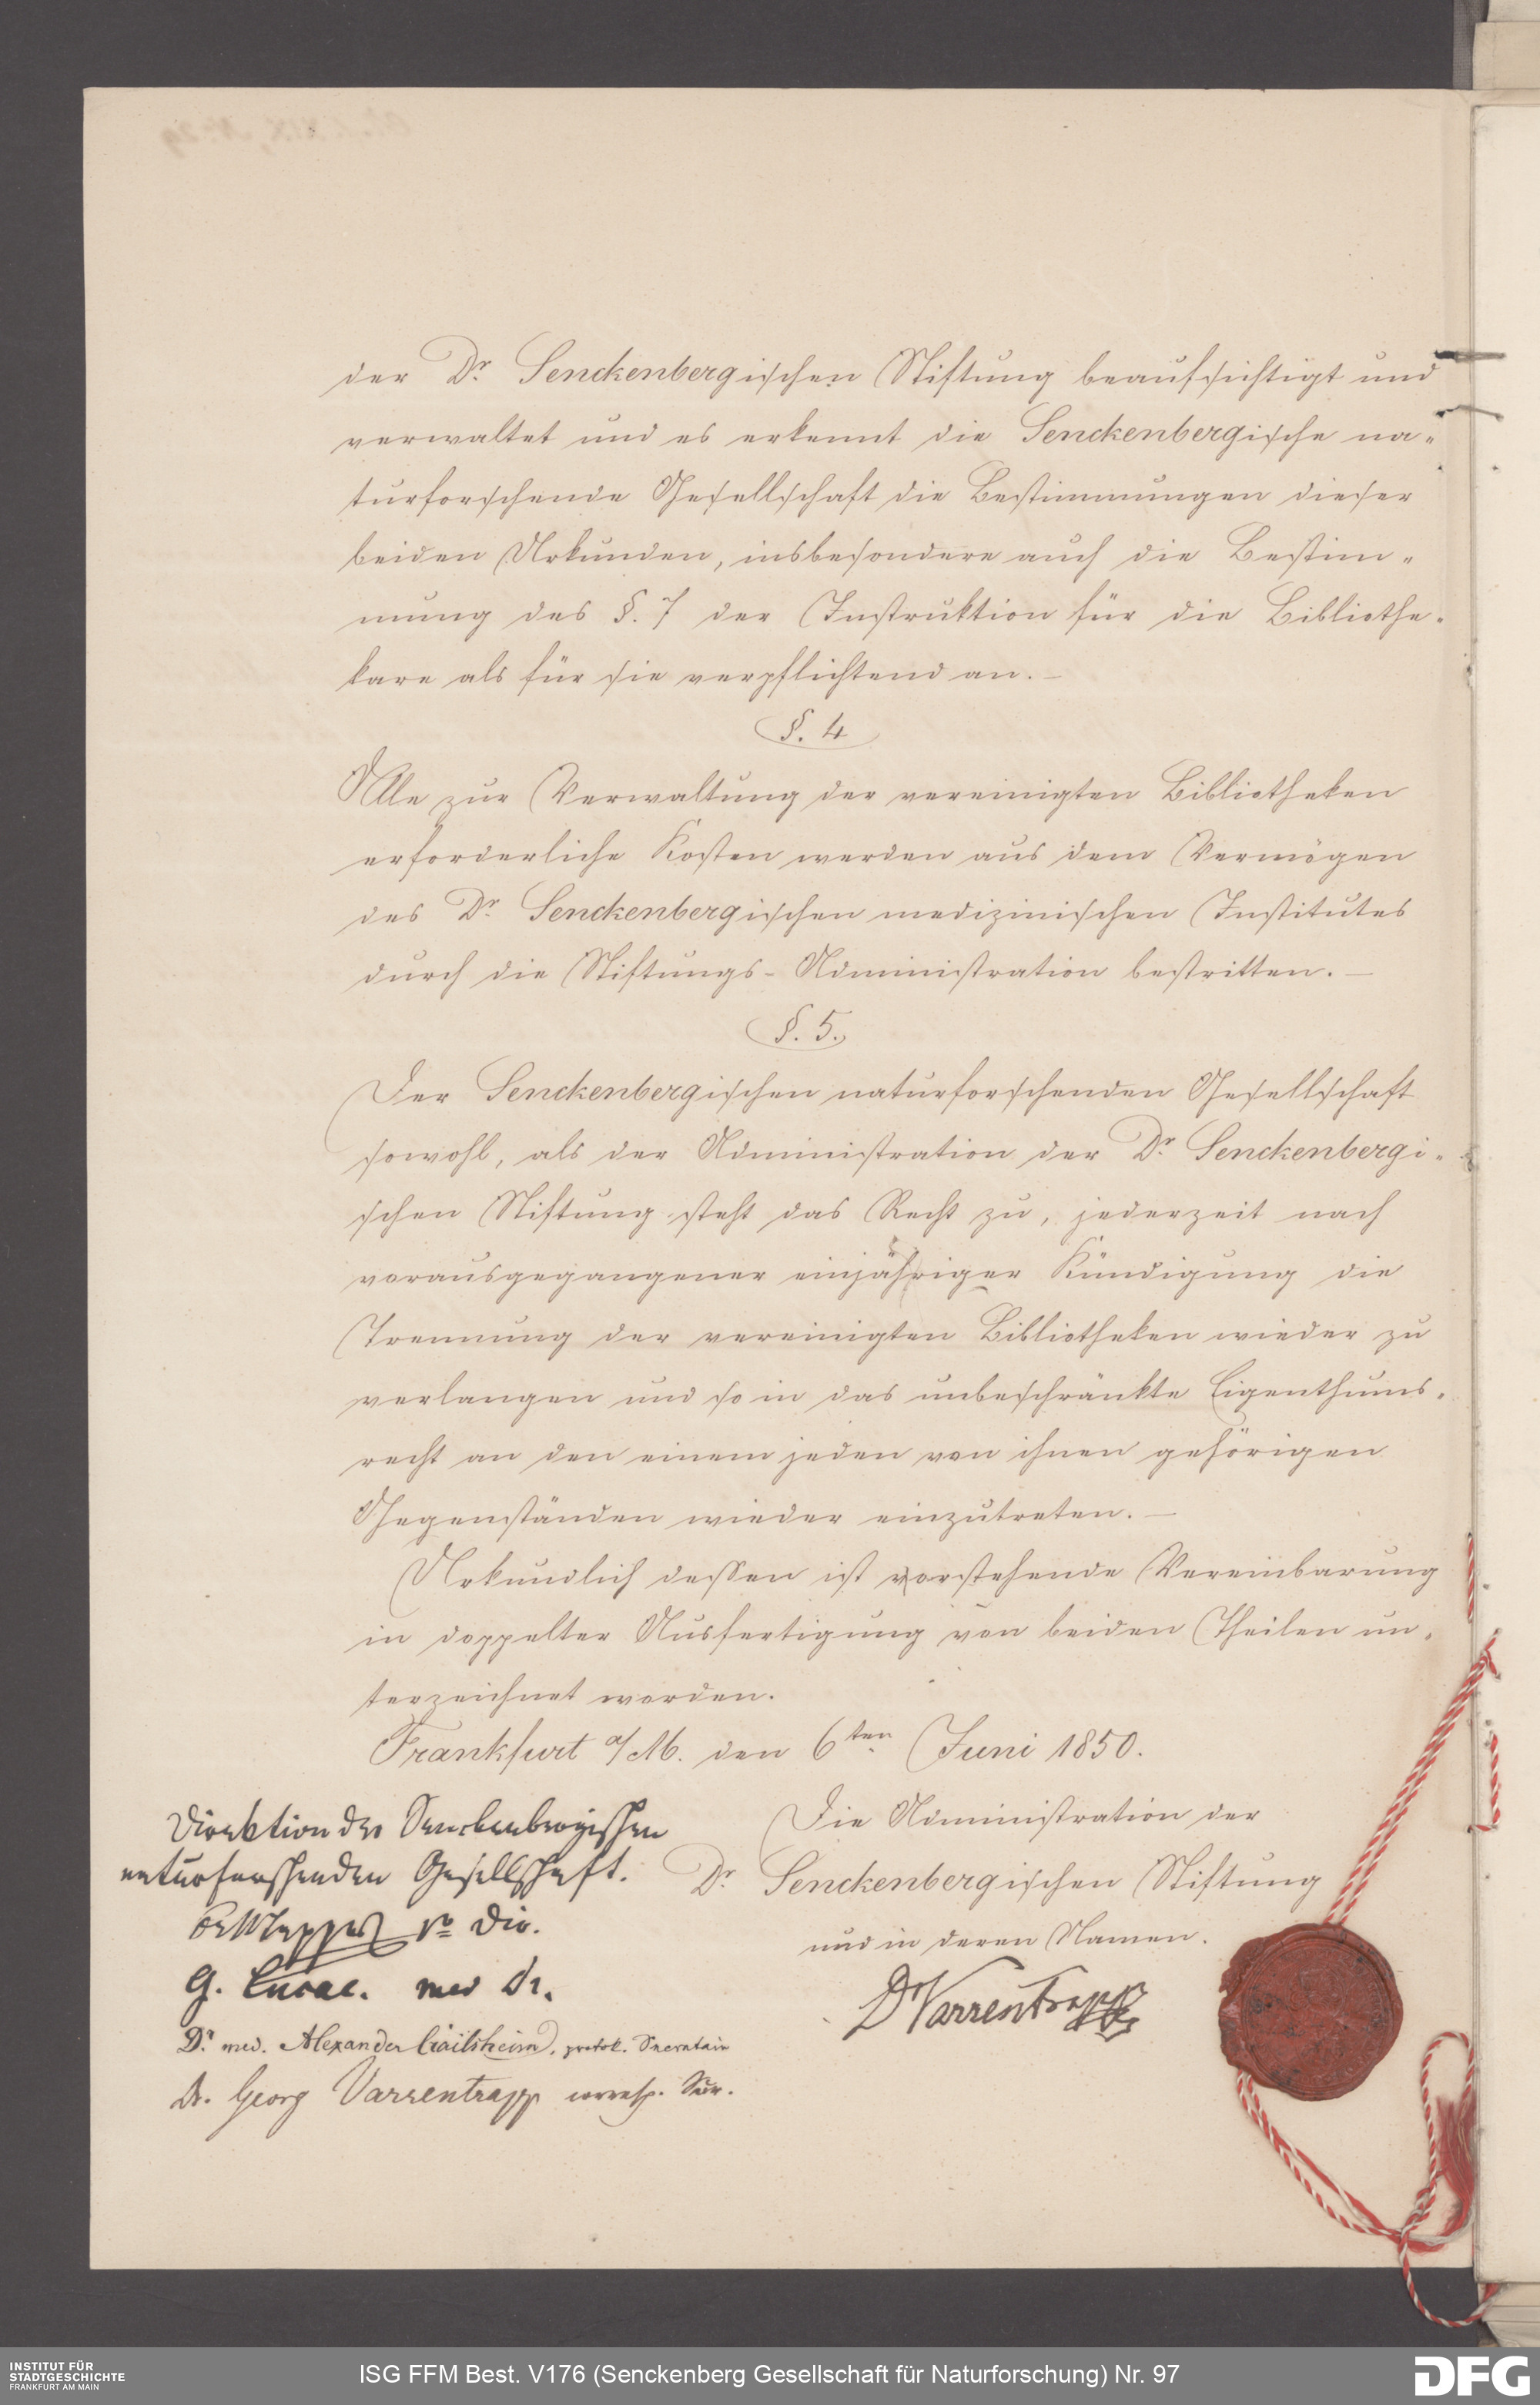 der Dr. Senckenbergischen Stiftung beaufsichtigt und
verwaltet und es erkennt die Senckenbergische na-
turforschende Gesellschaft die Bestimmungen dieser
beiden Urkunden, insbesondere auch die Bestim-
mung des §. 7 der Instruktion für die Bibliothe-
kare als für sie verpflichtend an. —
§. 4
Alle zur Verwaltung der vereinigten Bibliotheken
erforderliche Kosten werden aus dem Vermögen
des Dr. Senckenbergischen medizinischen Institutes
durch die Stiftungs-Administration bestritten. —
§. 5.
Der Senckenbergischen naturforschenden Gesellschaft
sowohl, als der Administration der Dr. Senckenbergi-
schen Stiftung steht das Recht zu, jederzeit nach
vorausgegangener einjähriger Kündigung die
Trennung der vereinigten Bibliotheken wieder zu
verlangen und so in das unbeschränkte Eigenthums-
recht an den einem jeden von ihnen gehörigen
Gegenständen wieder einzutreten. —
Urkundlich dessen ist vorstehende Vereinbarung
in doppelter Ausfertigung von beiden Theilen un-
terzeichnet worden.
Frankfurt a/M. den 6ten Juni 1850.
Direktion der Senckenbergischen
naturforschenden Gesellschaft.
Dir.
G. Lucae. med Dr.
Dr. med. Alexander Crailsheim, protok. Secretair
Dr. Georg Varrentrapp corresp. Secr.
Die Administration der
Dr. Senckenbergischen Stiftung
und in deren Namen.
Dr Varrentrapp
INSTITUT FÜR
STADTGESCHICHTE
FRANKFURT AM MAIN
ISG FFM Best. V176 (Senckenberg Gesellschaft für Naturforschung) Nr. 97
DFG